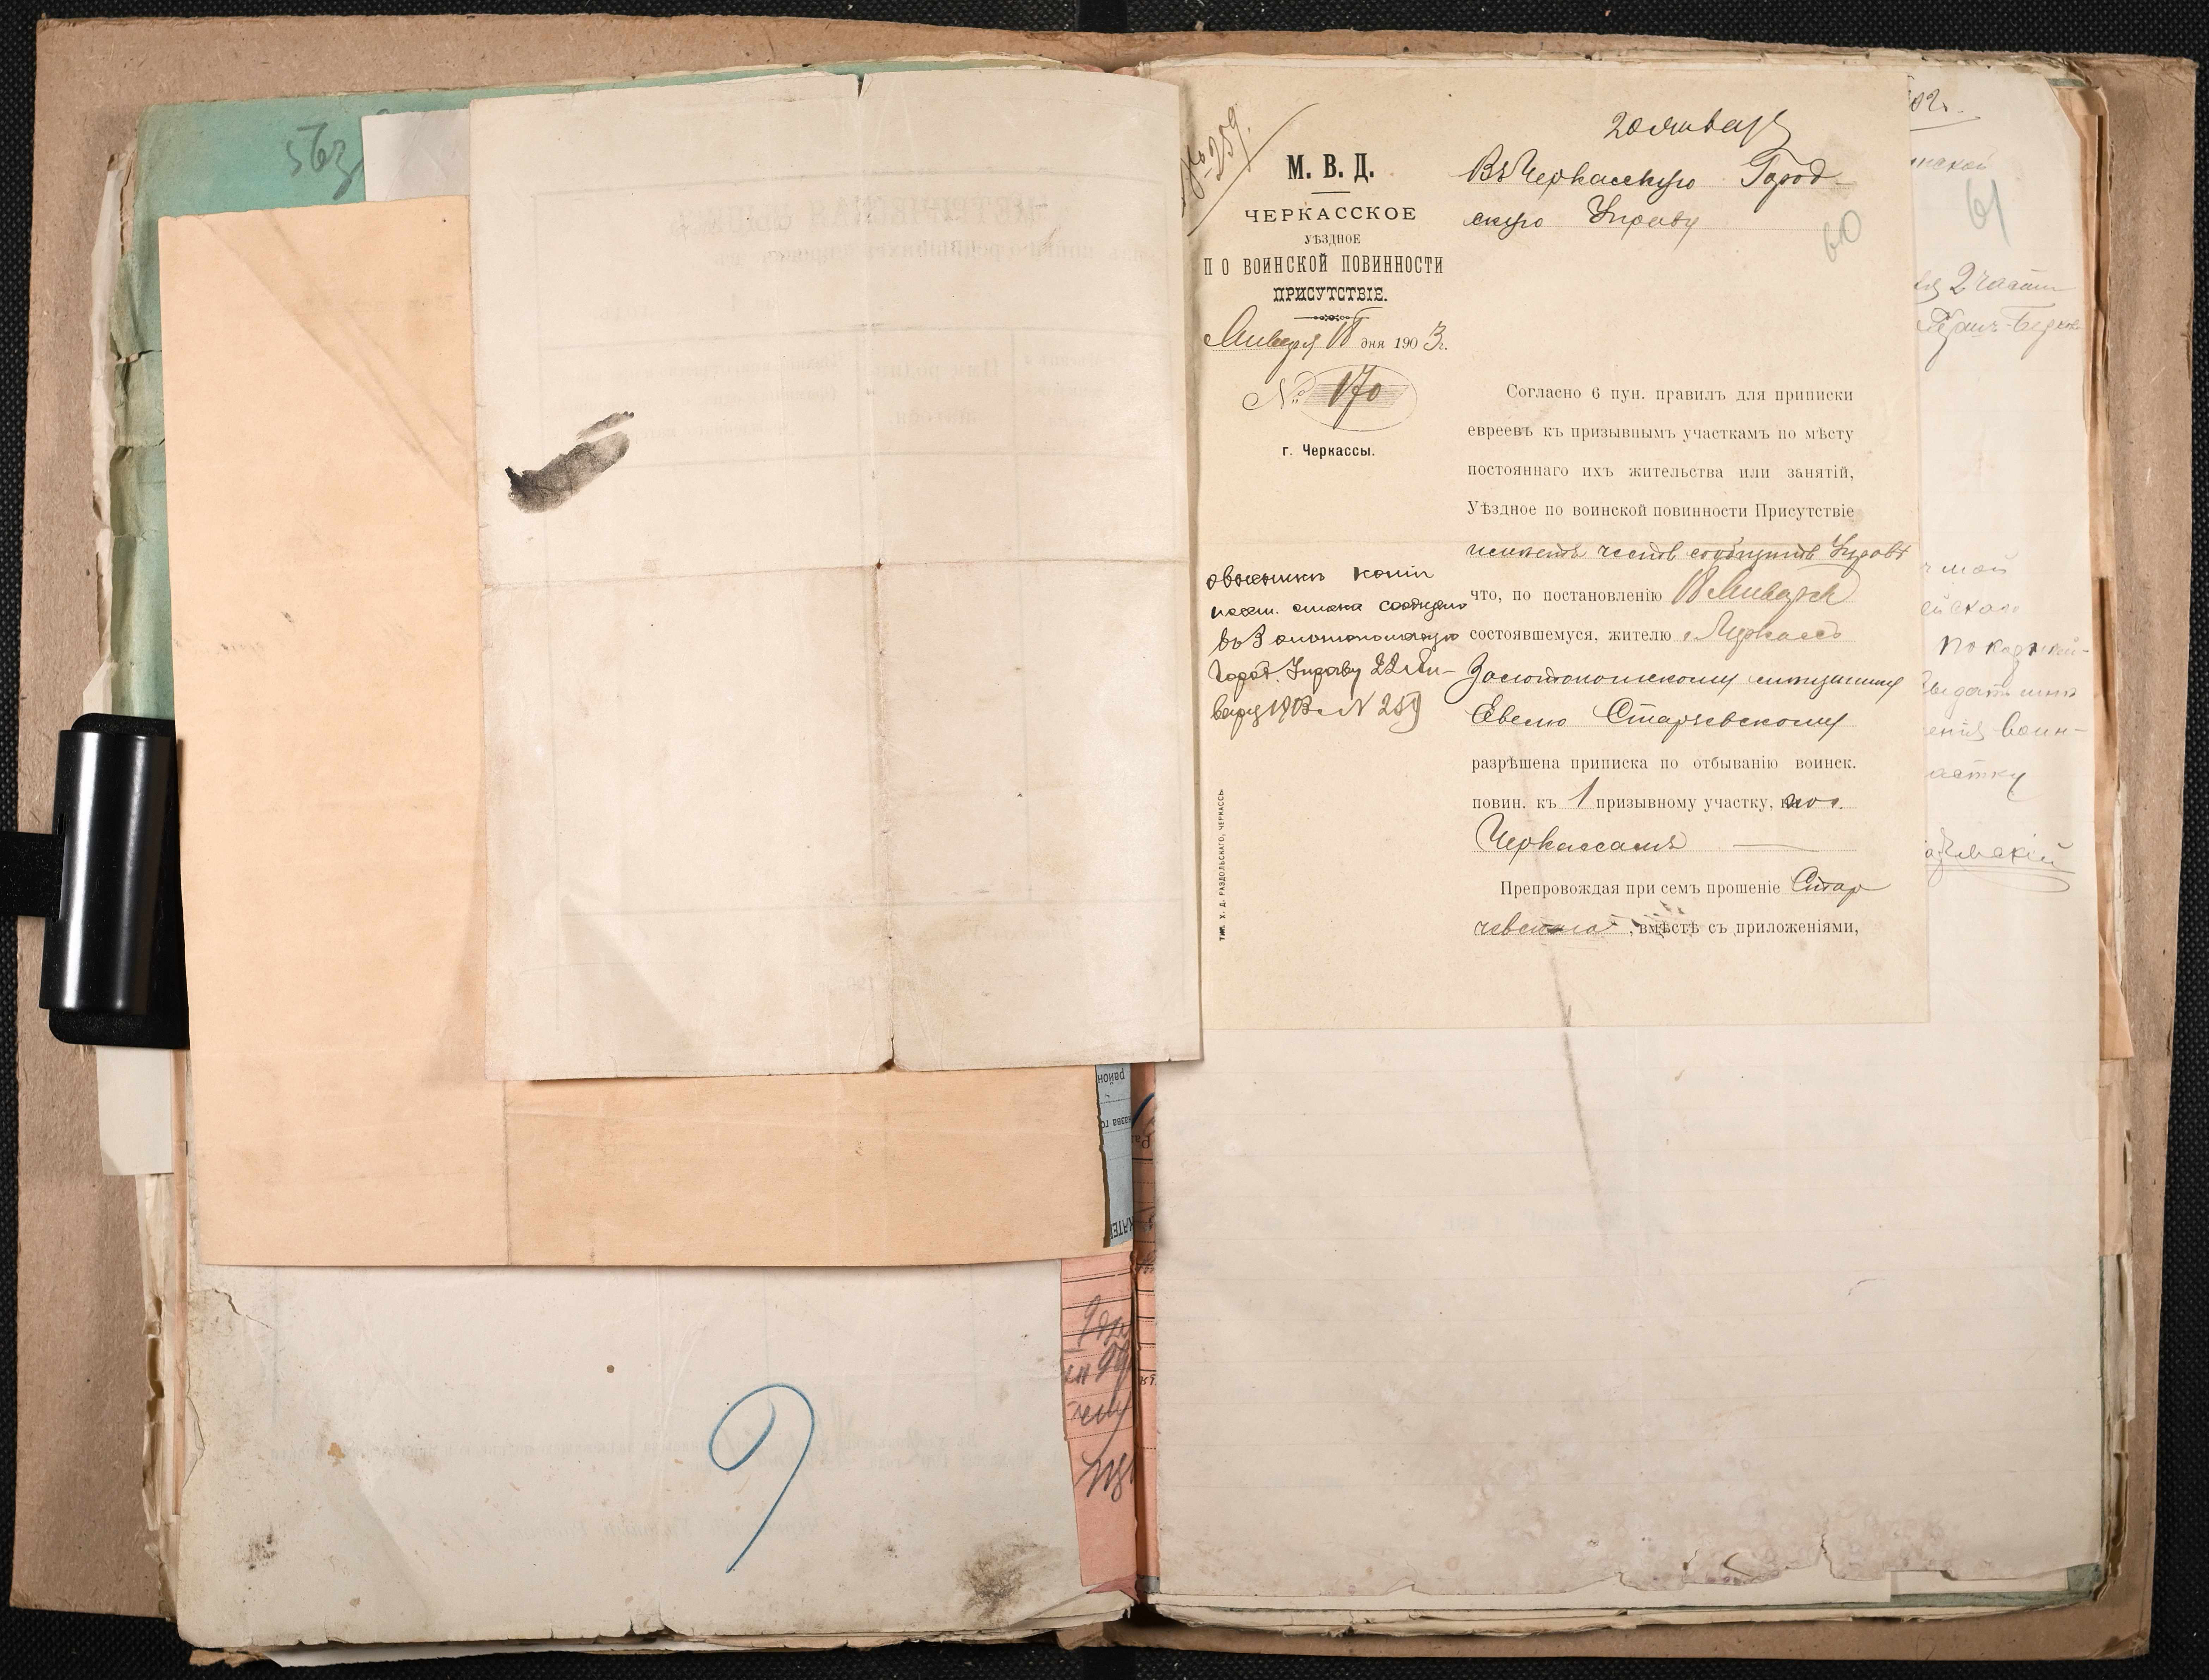 563
№ 259.
20 января
М. В. Д.
ЧЕРКАССКОЕ
УѢЗДНОЕ
ПО ВОИНСКОЙ ПОВИННОСТИ
ПРИСУТСТВІЕ.
Января 18 дня 1903 г.
№ 170
г. Черкассы.
Въ Черкасскую Город-
скую Управу
60
Согласно 6 пун. правилъ для приписки
евреевъ къ призывнымъ участкамъ по мѣсту
постояннаго ихъ жительства или занятій,
Уѣздное по воинской повинности Присутствіе
имѣетъ честь сообщить Управѣ
что, по постановленію 18 Января
состоявшемуся, жителю г. Черкассъ
Золотоношскому мѣщанину
Евелю Старчевскому
разрѣшена приписка по отбыванію воинск.
повин. къ 1 призывному участку, по г.
Черкассамъ
Препровождая при семъ прошеніе Стар
чевскаго, вмѣстѣ съ приложеніями,
копіи
сообщено
въ Золотоношскую
Город. Управу 22 Ян-
варя 1903 г. № 259
ТИП. Х. Д. РАЗДОЛЬСКАГО, ЧЕРКАССЫ
61
2 части
мой
воин-
астку
район
9